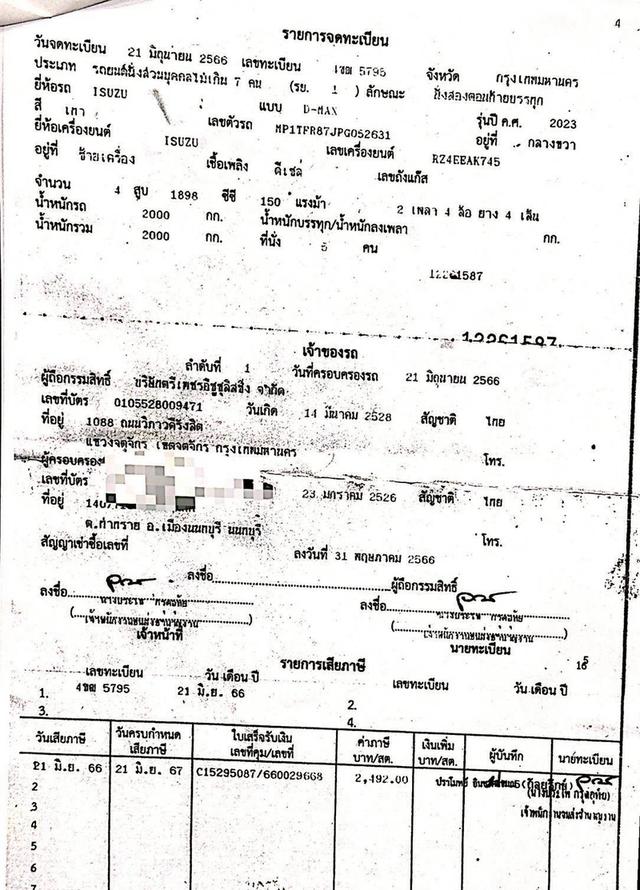 4
รายการจดทะเบียน
วันจดทะเบียน 21 มิถุนายน 2566 เลขทะเบียน 5795 จังหวัด กรุงเทพมหานคร
ประเภท รถยนต์นั่งส่วนบุคคลไม่เกิน 7 คน (รย. 1 ) ลักษณะ นั่งสองตอนท้ายบรรทุก
ยี่ห้อรถ ISUZU แบบ D-MAX รุ่นปี ค.ศ. 2023
สี เทา เลขตัวรถ MP1TFR87JPG052631 อยู่ที่ กลางขวา
ยี่ห้อเครื่องยนต์ ISUZU เลขเครื่องยนต์ RZ4EEAK745
อยู่ที่ ซ้ายเครื่อง เชื้อเพลิง ดีเซล เลขถังแก๊ส
จำนวน 4 สูบ 1898 ซีซี 150 แรงม้า 2 เพลา 4 ล้อ ยาง 4 เส้น
น้ำหนักรถ 2000 กก. น้ำหนักบรรทุก/น้ำหนักลงเพลา กก.
น้ำหนักรวม 2000 กก. ที่นั่ง 5 คน
12261587
12261587
เจ้าของรถ
ลำดับที่ 1 วันที่ครอบครองรถ 21 มิถุนายน 2566
ผู้ถือกรรมสิทธิ์ บริษัทตรีเพชรอีซูซุลิสซิ่ง จำกัด
เลขที่บัตร 0105528009471 วันเกิด 14 มีนาคม 2528 สัญชาติ ไทย
ที่อยู่ 1088 ถนนวิภาวดีรังสิต
แขวงจตุจักร เขตจตุจักร กรุงเทพมหานคร โทร.
ผู้ครอบครอง
เลขที่บัตร 23 มกราคม 2526 สัญชาติ ไทย
ที่อยู่
ต.ท่าทราย อ.เมืองนนทบุรี นนทบุรี โทร.
สัญญาเช่าซื้อเลขที่ ลงวันที่ 31 พฤษภาคม 2566
ลงชื่อ ผู้ถือกรรมสิทธิ์
ลงชื่อ ลงชื่อ
เจ้าหน้าที่ นายทะเบียน
รายการเสียภาษี
เลขทะเบียน วัน เดือน ปี เลขทะเบียน วัน เดือน ปี
1. 4ขฒ 5795 21 มิ.ย. 66 2.
3. 4.
วันเสียภาษี วันครบกำหนดเสียภาษี ใบเสร็จรับเงิน เลขที่คุม/เลขที่ ค่าภาษี บาท/สต. เงินเพิ่ม บาท/สต. ผู้บันทึก นายทะเบียน
21 มิ.ย. 66 21 มิ.ย. 67 C15295087/660029668 2,492.00
2
3
4
5
6
7